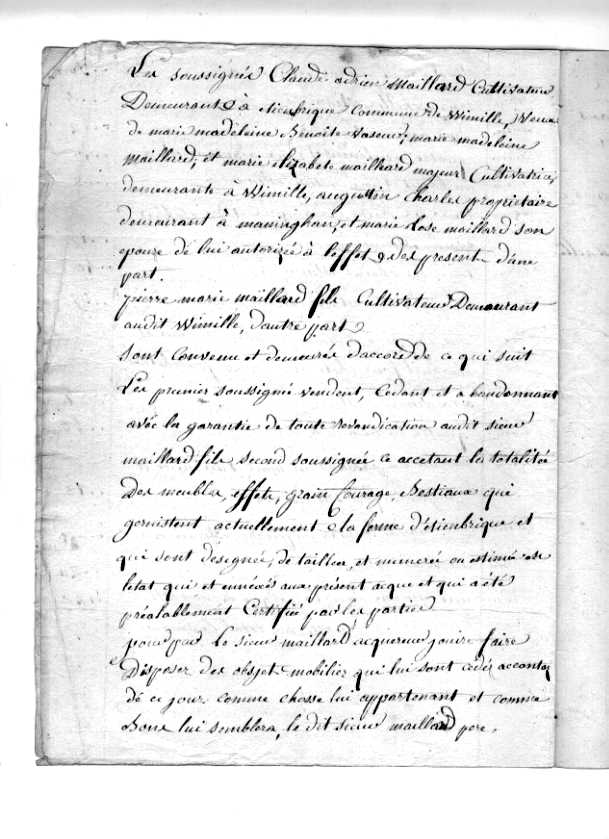 Les soussignés Claude adrien Maillard Cultivateur
Demeurant à etienbrique Commune De Wimille, Veuf
de marie madeleine Benoite vaseur, marie madeleine
maillard, et marie elizabete mailhard majeur Cultivatrice,
demeurante à Wimille, augustin Charles proprietaire
demeurant à maninghen, et marie Rose maillard son
epouse de lui autorizée à leffet des present dune
part.
pierre marie maillard fils Cultivateur Demeurant
audit Wimille, dautre part
Sont Convenu et demeurés daccord de ce qui suit
Les premier soussigné vendent, Cedant et abandonnant
avec la garantie de toute revandication audit sieur
maillard fils second soussignée ce accetant la totalitée
Des meubles, effets, grain fourage, Bestiaux qui
garnissent actuellement la ferme d'étienbrique et
qui sont désignée, de tailler, et numeré ou estimée
letat qui et annéxée aux présent et qui a été
préalablement Certifiée par les partie
pour par Le sieur maillard acquereur jouir faire
Disposer des objets mobilier qui lui sont cedés accontez
dé ce jour comme chosse lui appartenant et comme
Bone lui semblera, le dit sieur maillard pere,